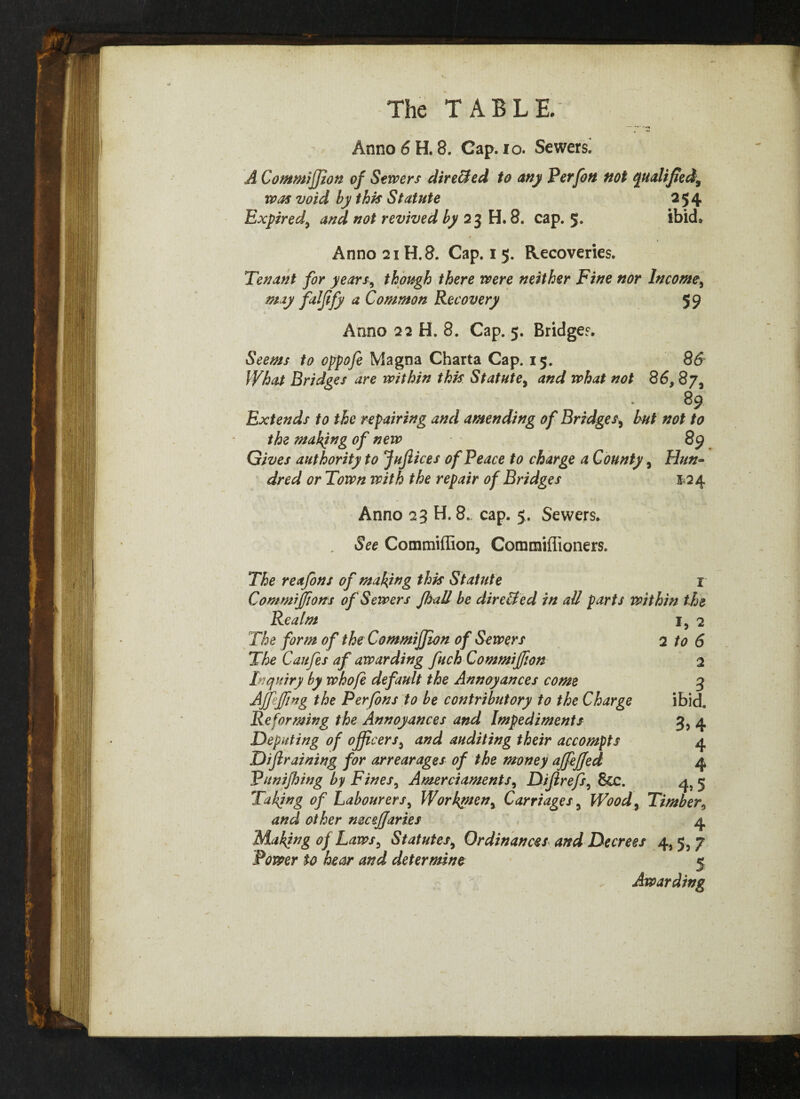 The TABLE.
Anno 6 H. 8. Cap. 10. Sewers.
A Commiſſion of Sewers directed to any Perſon not qualified,
was void by this Statute 254
Expired, and not revived by 23 H. 8. cap. 5. ibid.
Anno 21 H. 8. Cap. 15. Recoveries.
Tenant for years, though there were neither Fine nor Income,
may falſify a Common Recovery 59
Anno 22 H. 8. Cap. 5. Bridges.
Seems to oppoſe Magna Charta Cap. 15. 86
What Bridges are within this Statute, and what not 86, 87,
89
Extends to the repairing and amending of Bridges, but not to
the making of new 89
Gives authority to Juſtices of Peace to charge a County, Hun-
dred or Town with the repair of Bridges 124
Anno 23 H. 8. cap. 5. Sewers.
See Commiſſion, Commiſſioners.
The reaſons of making this Statute 1
Commiſſions of Sewers ſhall be directed in all parts within the
Realm 1, 2
The form of the Commiſſion of Sewers 2 to 6
The Cauſes af awarding ſuch Commiſſion 2
Inquiry by whoſe default the Annoyances come 3
Aſſeſſing the Perſons to be contributory to the Charge ibid.
Reforming the Annoyances and Impediments 3, 4
Deputing of officers, and auditing their accompts 4
Diſtraining for arrearages of the money aſſeſſed 4
Puniſhing by Fines, Amerciaments, Diſtreſs, &c. 4, 5
Taking of Labourers, Workmen, Carriages, Wood, Timber,
and other neceſſaries 4
Making of Laws, Statutes, Ordinances and Decrees 4, 5, 7
Power to hear and determine 5
Awarding